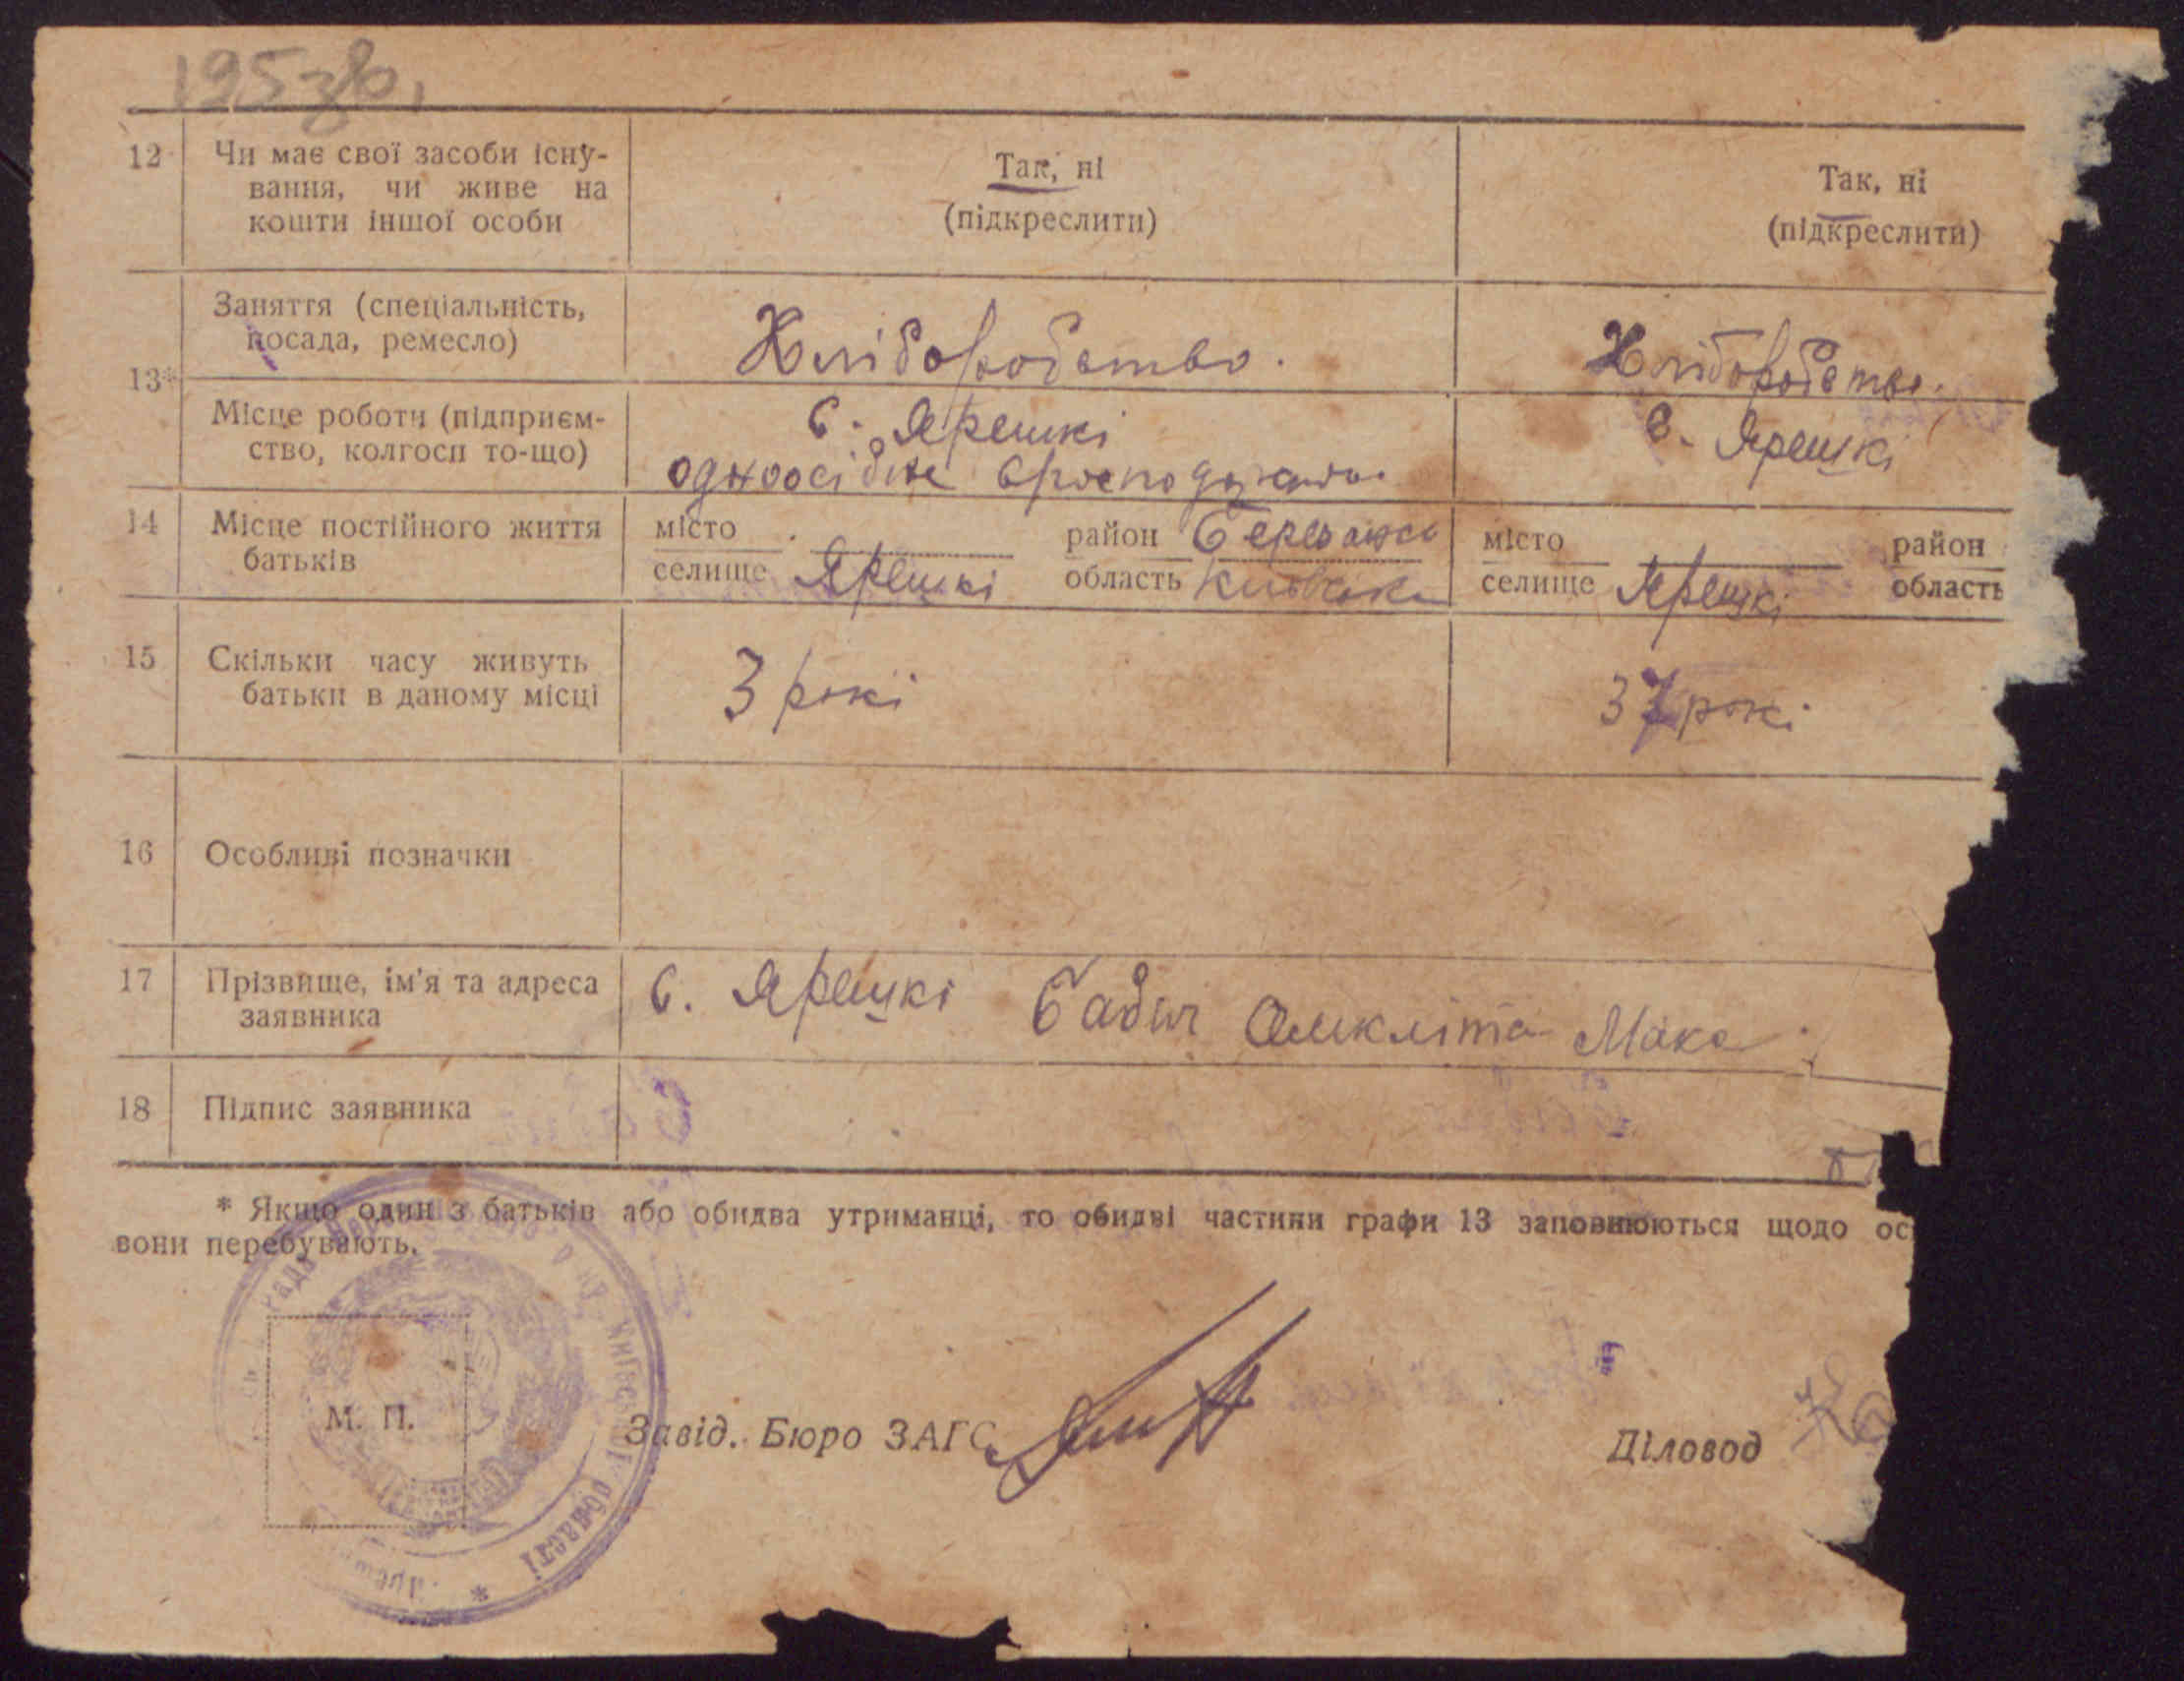 195зв.
12 Чи має свої засоби існу-
вання, чи живе на
кошти іншої особи
Так, ні
(підкреслити)
Так, ні
(підкреслити)
13*
Заняття (спеціальність,
посада, ремесло)
Хліборобство.
Хліборобство.
Місце роботи (підприєм-
ство, колгосп то-що)
С. Ярешкі
одноосібне
С. Ярешкі
14 Місце постійного життя
батьків
місто
селище Ярешкі
район
область Київська
місто
селище Ярешкі
район
область
15 Скільки часу живуть
батьки в даному місці
3 рокі
37 рокі
16 Особливі позначки
17 Прізвище, ім'я та адреса
заявника
С. Ярешкі Бабич Мака
18 Підпис заявника
* Якщо один з батьків або обидва утриманці, то обидві частини графи 13 заповнюються щодо ос
вони перебувають.
М. П.
області
Завід. Бюро ЗАГС
Діловод